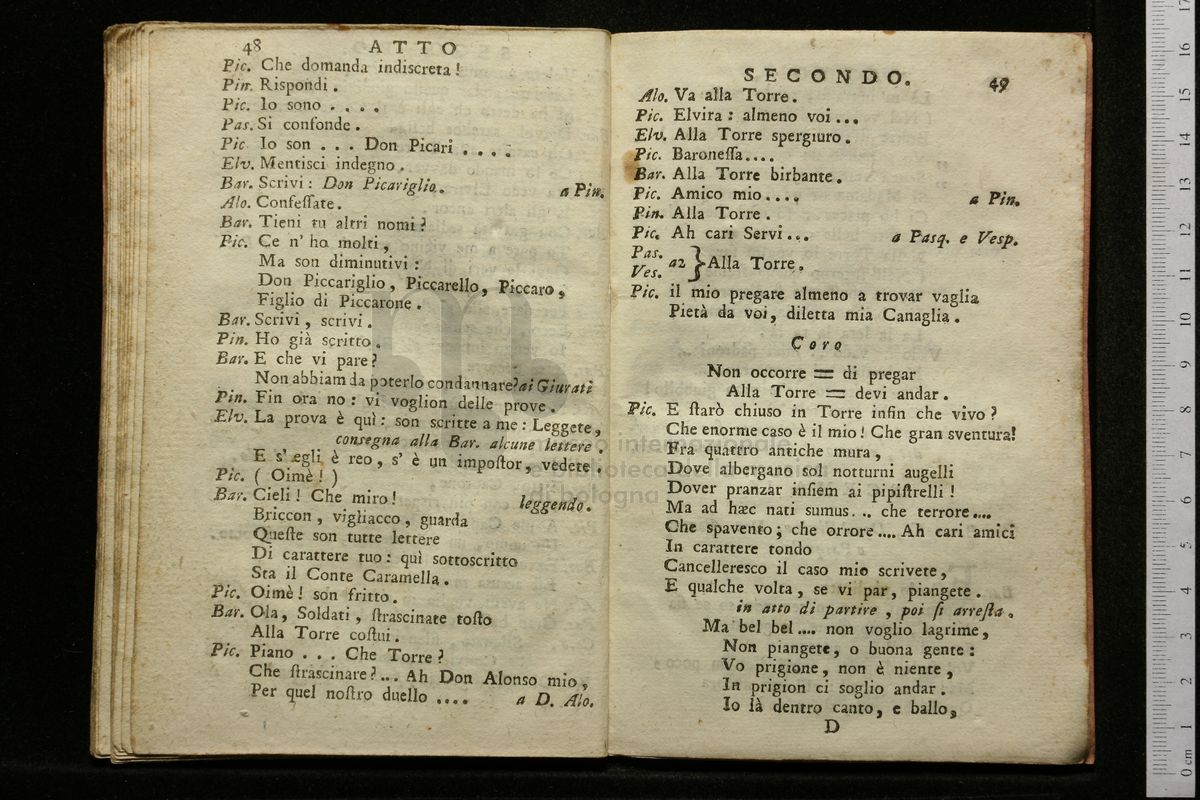 48 ATTO
Pic. Che domanda indiscreta!
Pin. Rispondi.
Pic. Io sono . . . .
Pas. Si confonde.
Pic Io son . . . Don Picari . . . .
Elv. Mentisci indegno.
Bar. Scrivi: Don Picariglio. a Pin.
Alo. Confeſſate.
Bar. Tieni tu altri nomi?
Pic. Ce n' ho molti,
Ma son diminutivi:
Don Piccariglio, Piccarello, Piccaro,
Figlio di Piccarone.
Bar. Scrivi, scrivi.
Pin. Ho già scritto.
Bar. E che vi pare?
Non abbiam da poterlo condannare? ai Giurati
Pin. Fin ora no: vi voglion delle prove.
Elv. La prova è quì: son scritte a me: Leggete,
consegna alla Bar. alcune lettere.
E s' egli è reo, s' è un impoſtor, vedete.
Pic. ( Oimè! )
Bar. Cieli! Che miro! leggendo.
Briccon, vigliacco, guarda
Queſte son tutte lettere
Di carattere tuo: quì sottoscritto
Sta il Conte Caramella.
Pic. Oimè! son fritto.
Bar. Ola, Soldati, ſtrascinate toſto
Alla Torre coſtui.
Pic. Piano . . . Che Torre?
Che ſtrascinare?... Ah Don Alonso mio,
Per quel noſtro duello .... a D. Alo.
SECONDO. 49
Alo. Va alla Torre.
Pic. Elvira: almeno voi...
Elv. Alla Torre spergiuro.
Pic. Baroneſſa....
Bar. Alla Torre birbante.
Pic. Amico mio.... a Pin.
Pin. Alla Torre.
Pic. Ah cari Servi... a Pasq. e Vesp.
Pas.
Ves. a2 } Alla Torre.
Pic. il mio pregare almeno a trovar vaglia
Pietà da voi, diletta mia Canaglia.
Coro
Non occorre = di pregar
Alla Torre = devi andar.
Pic. E ſtarò chiuso in Torre infin che vivo?
Che enorme caso è il mio! Che gran sventura!
Fra quattro antiche mura,
Dove albergano sol notturni augelli
Dover pranzar inſiem ai pipiſtrelli!
Ma ad hæc nati sumus... che terrore....
Che spavento; che orrore.... Ah cari amici
In carattere tondo
Cancelleresco il caso mio scrivete,
E qualche volta, se vi par, piangete.
in atto di partire, poi ſi arreſta.
Ma bel bel.... non voglio lagrime,
Non piangete, o buona gente:
Vo prigione, non è niente,
In prigion ci soglio andar.
Io là dentro canto, e ballo,
D
museo internazionale
e biblioteca
di bologna
0 cm 1 2 3 4 5 6 7 8 9 10 11 12 13 14 15 16 17